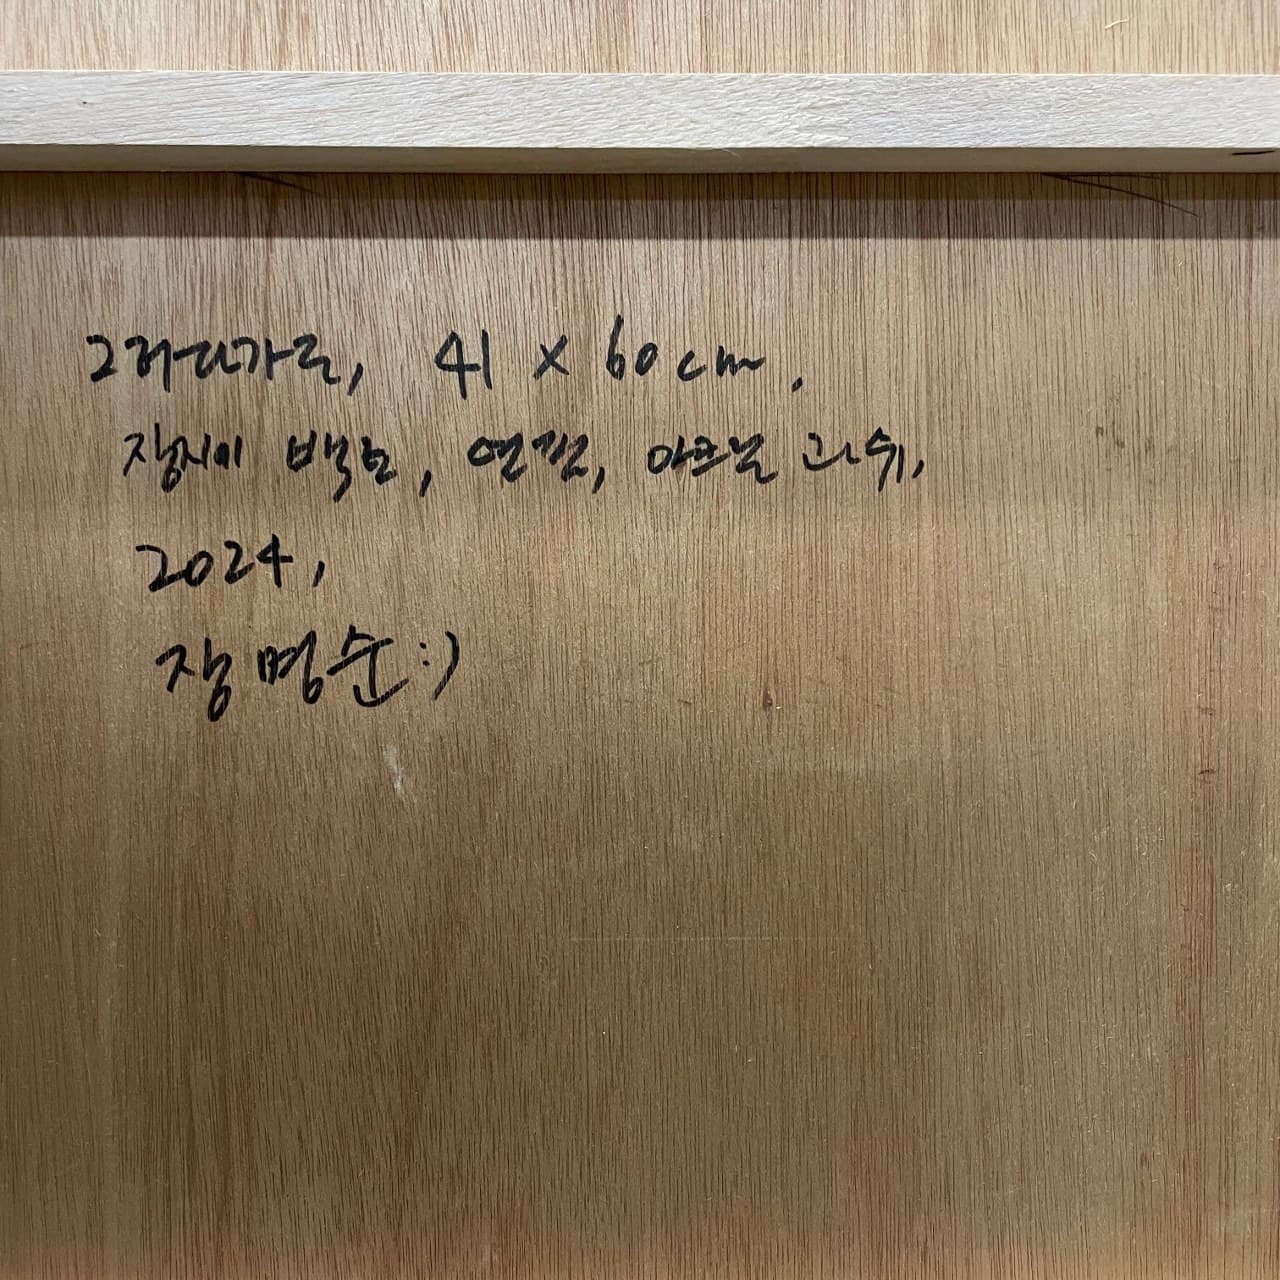 그러다가도, 41 x 60cm,
장지에 백토, 연필, 아크릴 과슈,
2024,
장명순:)